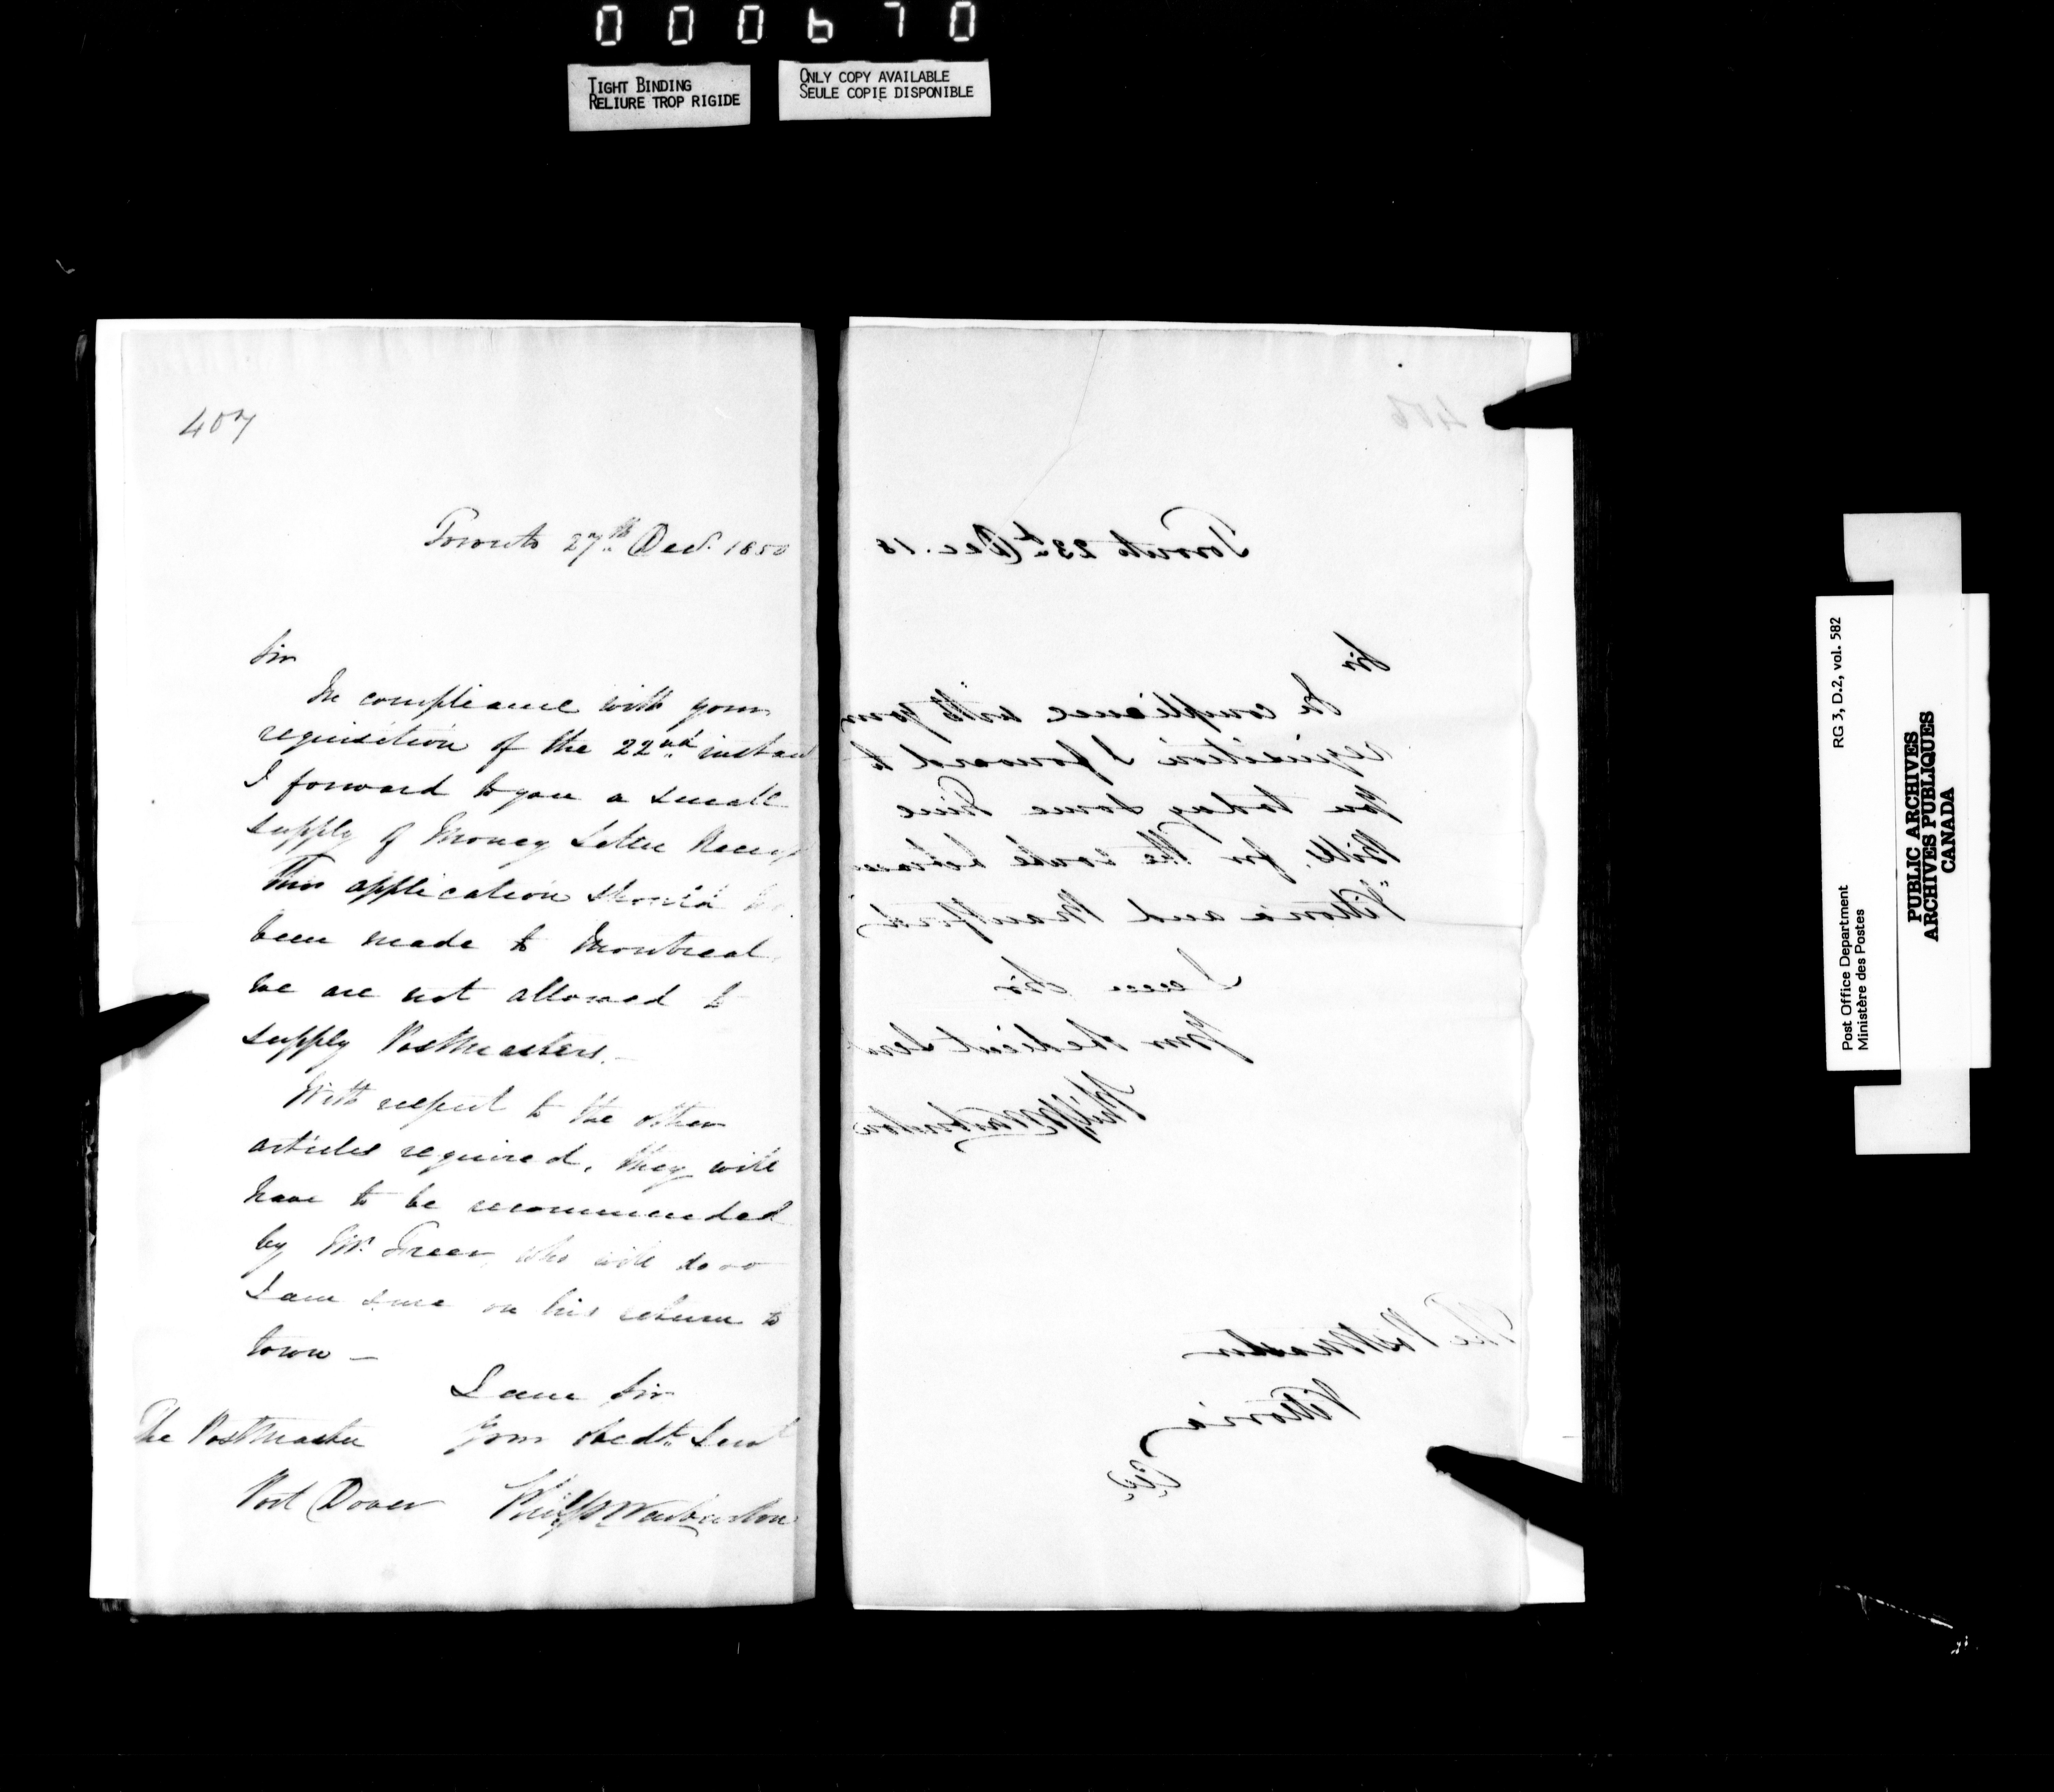 000670
TIGHT BINDING
RELIURE TROP RIGIDE
ONLY COPY AVAILABLE
SEULE COPIE DISPONIBLE
407
Toronto 27th Decr. 1850
Sir
In compliance with your
requisition of the 22nd instant
I forward to you a small
supply of Money Letter Receip
This application should
been made to Montreal,
we are not allowed to
supply Postmasters.—
With respect to the other
articles required, they will
have to be recommended
by Mr. Freer, who will do so
I am sure on his return to
town —
I am Sir
Your Obedt. Servt
The Postmaster
Port Dover
406
Toronto 23d Dec. 18
Sir
In compliance with your
requisition I forward to
you today some Time
Bills, for the route between
"Vittoria and Brantford"
I am Sir
Your Obedient Serv
The Postmaster
Vittoria
RG 3, D.2, vol. 582
Post Office Department
Ministère des Postes
PUBLIC ARCHIVES
ARCHIVES PUBLIQUES
CANADA